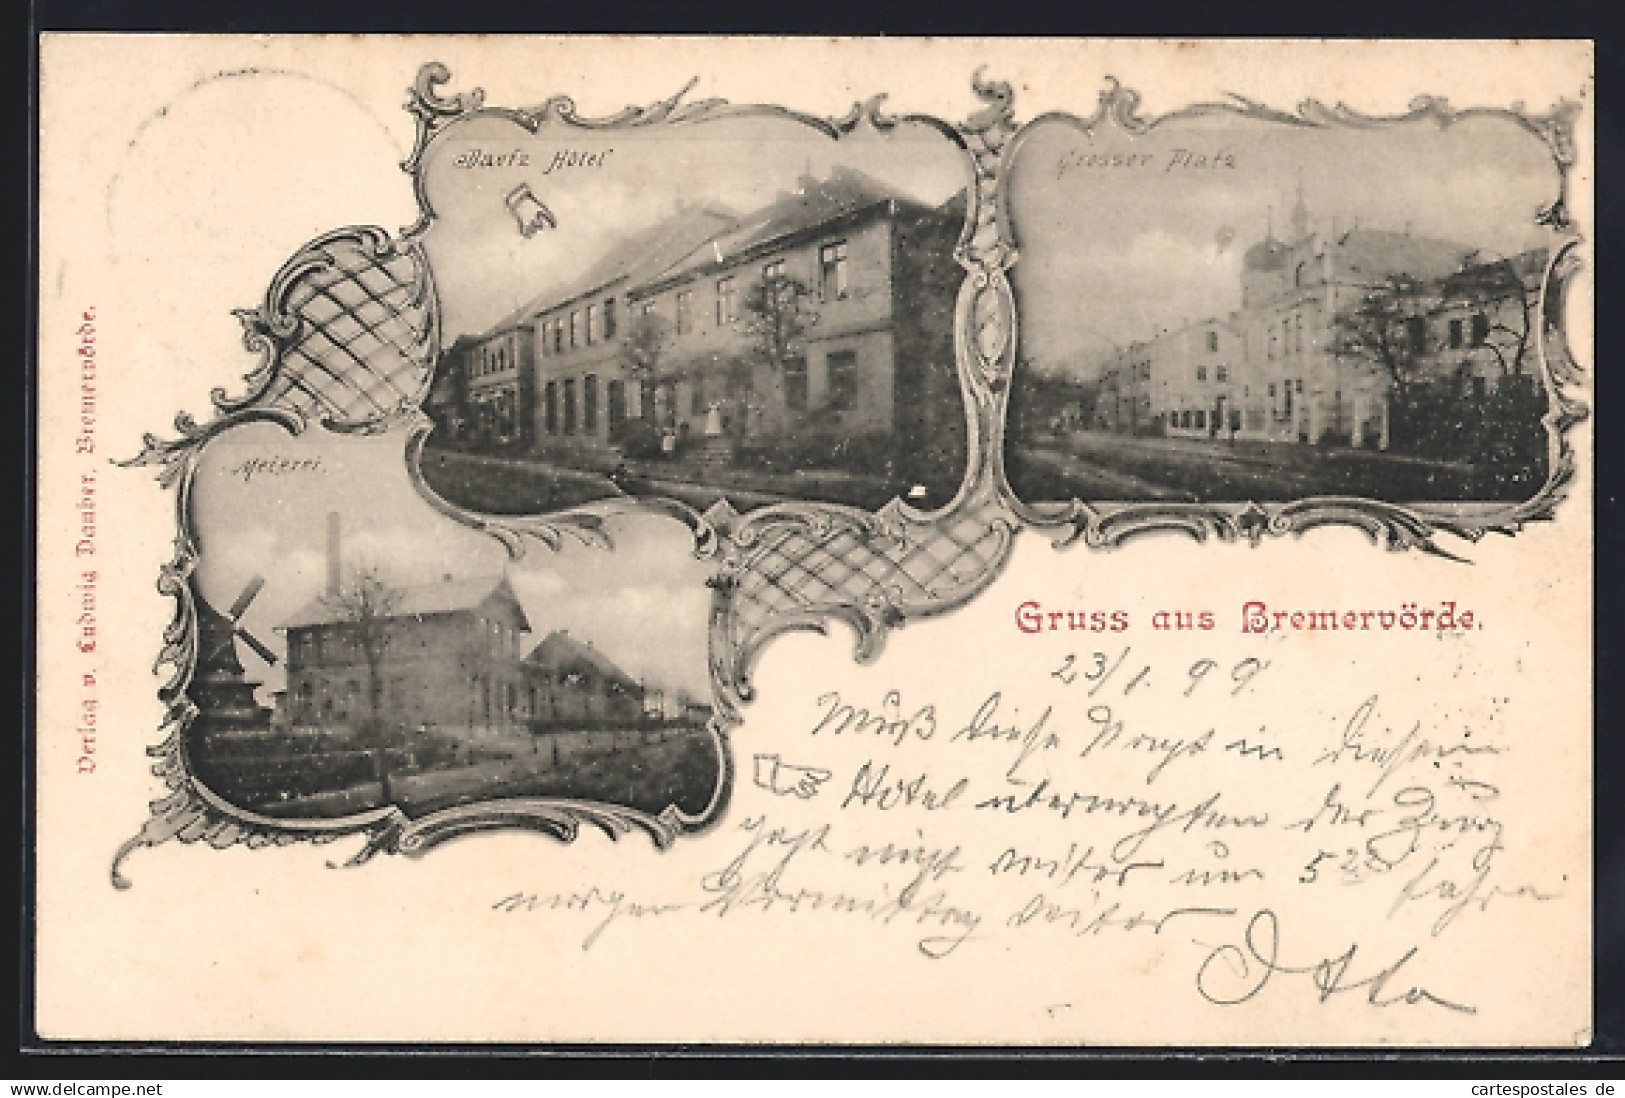 Hôtel
Grosser Platz
Meierei.
Verlag v. Ludwig Dauber, Bremervörde.
Gruss aus Bremervörde.
23/1. 99.
Muß diese Nacht in diesem
Hotel übernachten der Zug
geht nicht weiter um 5 fahre
morgen Vormittag weiter
Otto
cartespostales de
www.delcampe.net